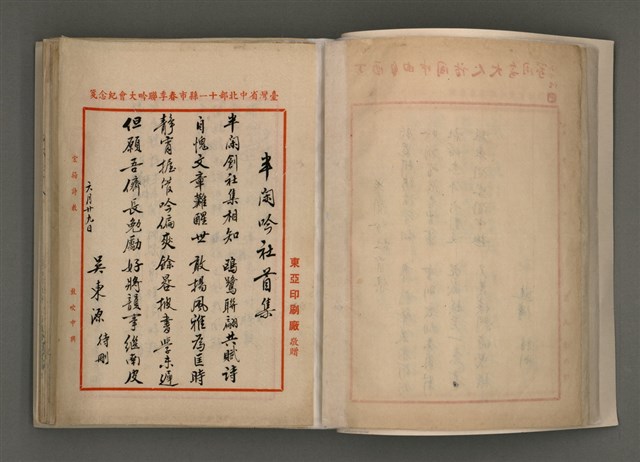 臺灣省中北部十一縣市春季聯吟大會紀念箋
半閑吟社首集
半閑創社集相知 鷗鷺聯翩共賦詩
自愧文章難醒世 敢揚風雅為匡時
靜宵握管吟偏爽 餘晷披書學未遲
但願吾儕長勉勵 好將韻事繼南皮
吳東源 待刪
六月廿九日
東亞印刷廠 敬贈